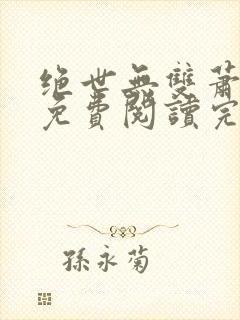 绝世無雙蕭
免費閱讀完
孫永菊